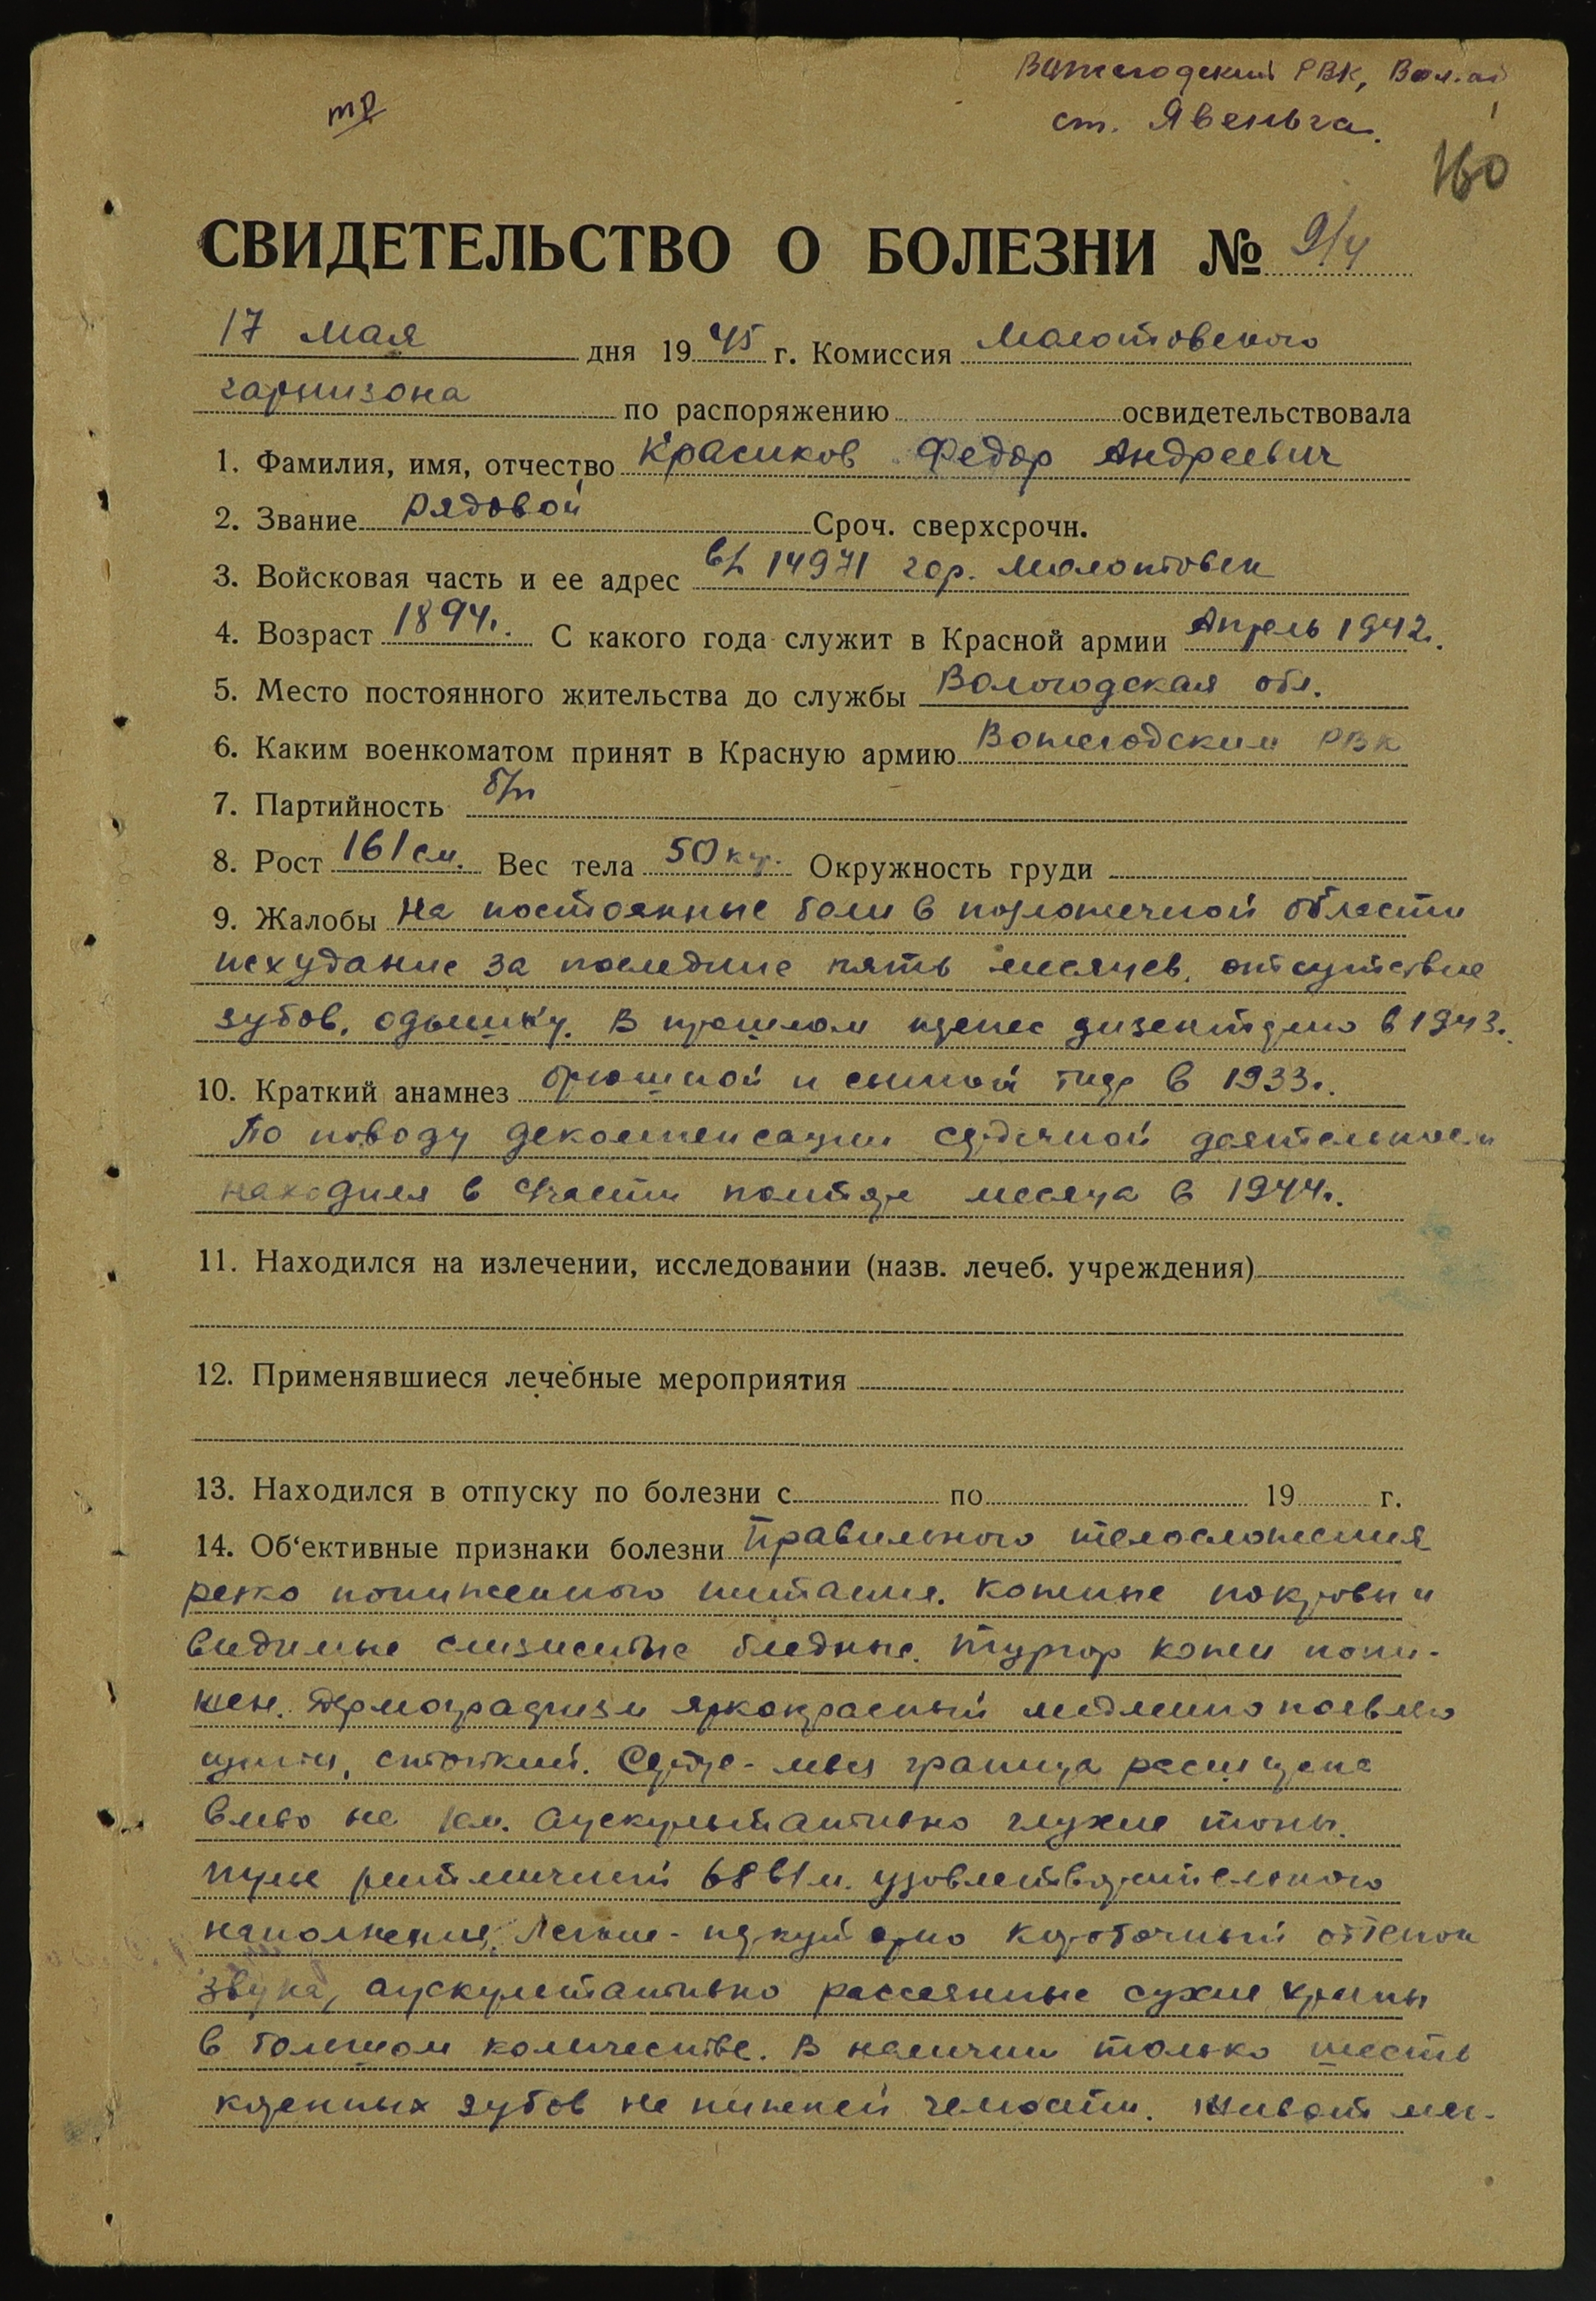 Вожегодский РВК, Вол. об
ст. Явеньга.
160
СВИДЕТЕЛЬСТВО О БОЛЕЗНИ № 9/4
17 мая дня 1945 г. Комиссия Молотовского
гарнизона по распоряжению освидетельствовала
1. Фамилия, имя, отчество Красиков Федор Андреевич
2. Звание Рядовой Сроч. сверхсрочн.
3. Войсковая часть и ее адрес в/ч 14971 гор. Молотовск
4. Возраст 1894г. С какого года служит в Красной армии Апрель 1942г.
5. Место постоянного жительства до службы Вологодская обл.
6. Каким военкоматом принят в Красную армию Вожегодским РВК
7. Партийность б/п
8. Рост 161 см. Вес тела 50 кгр. Окружность груди
9. Жалобы на постоянные боли в подложечной области
исхудание за последние пять месяцев, отсутствие
зубов, одышку. В прошлом перенес дизентерию в 1943г.
10. Краткий анамнез брюшной и сыпной тиф в 1933г.
По поводу декомпенсации сердечной деятельности
находился в части полтора месяца в 1944г.
11. Находился на излечении, исследовании (назв. лечеб. учреждения)
12. Применявшиеся лечебные мероприятия
13. Находился в отпуску по болезни с по 19 г.
14. Об‘ективные признаки болезни Правильного телосложения
резко пониженного питания. Кожные покровы и
видимые слизистые бледные. Тургор кожи пони-
жен. Дермографизм яркокрасный медленно появляю
щийся, стойкий. Сердце - левая граница расширена
влево на 1 см. Аускультативно глухие тоны.
Пульс ритмичный 68 в 1 м. удовлетворительного
наполнения. Легкие - перкуторно коробочный оттенок
звука, аускультативно рассеянные сухие хрипы
в большом количестве. В наличии только шесть
коренных зубов на нижней челюсти. Живот мяг-